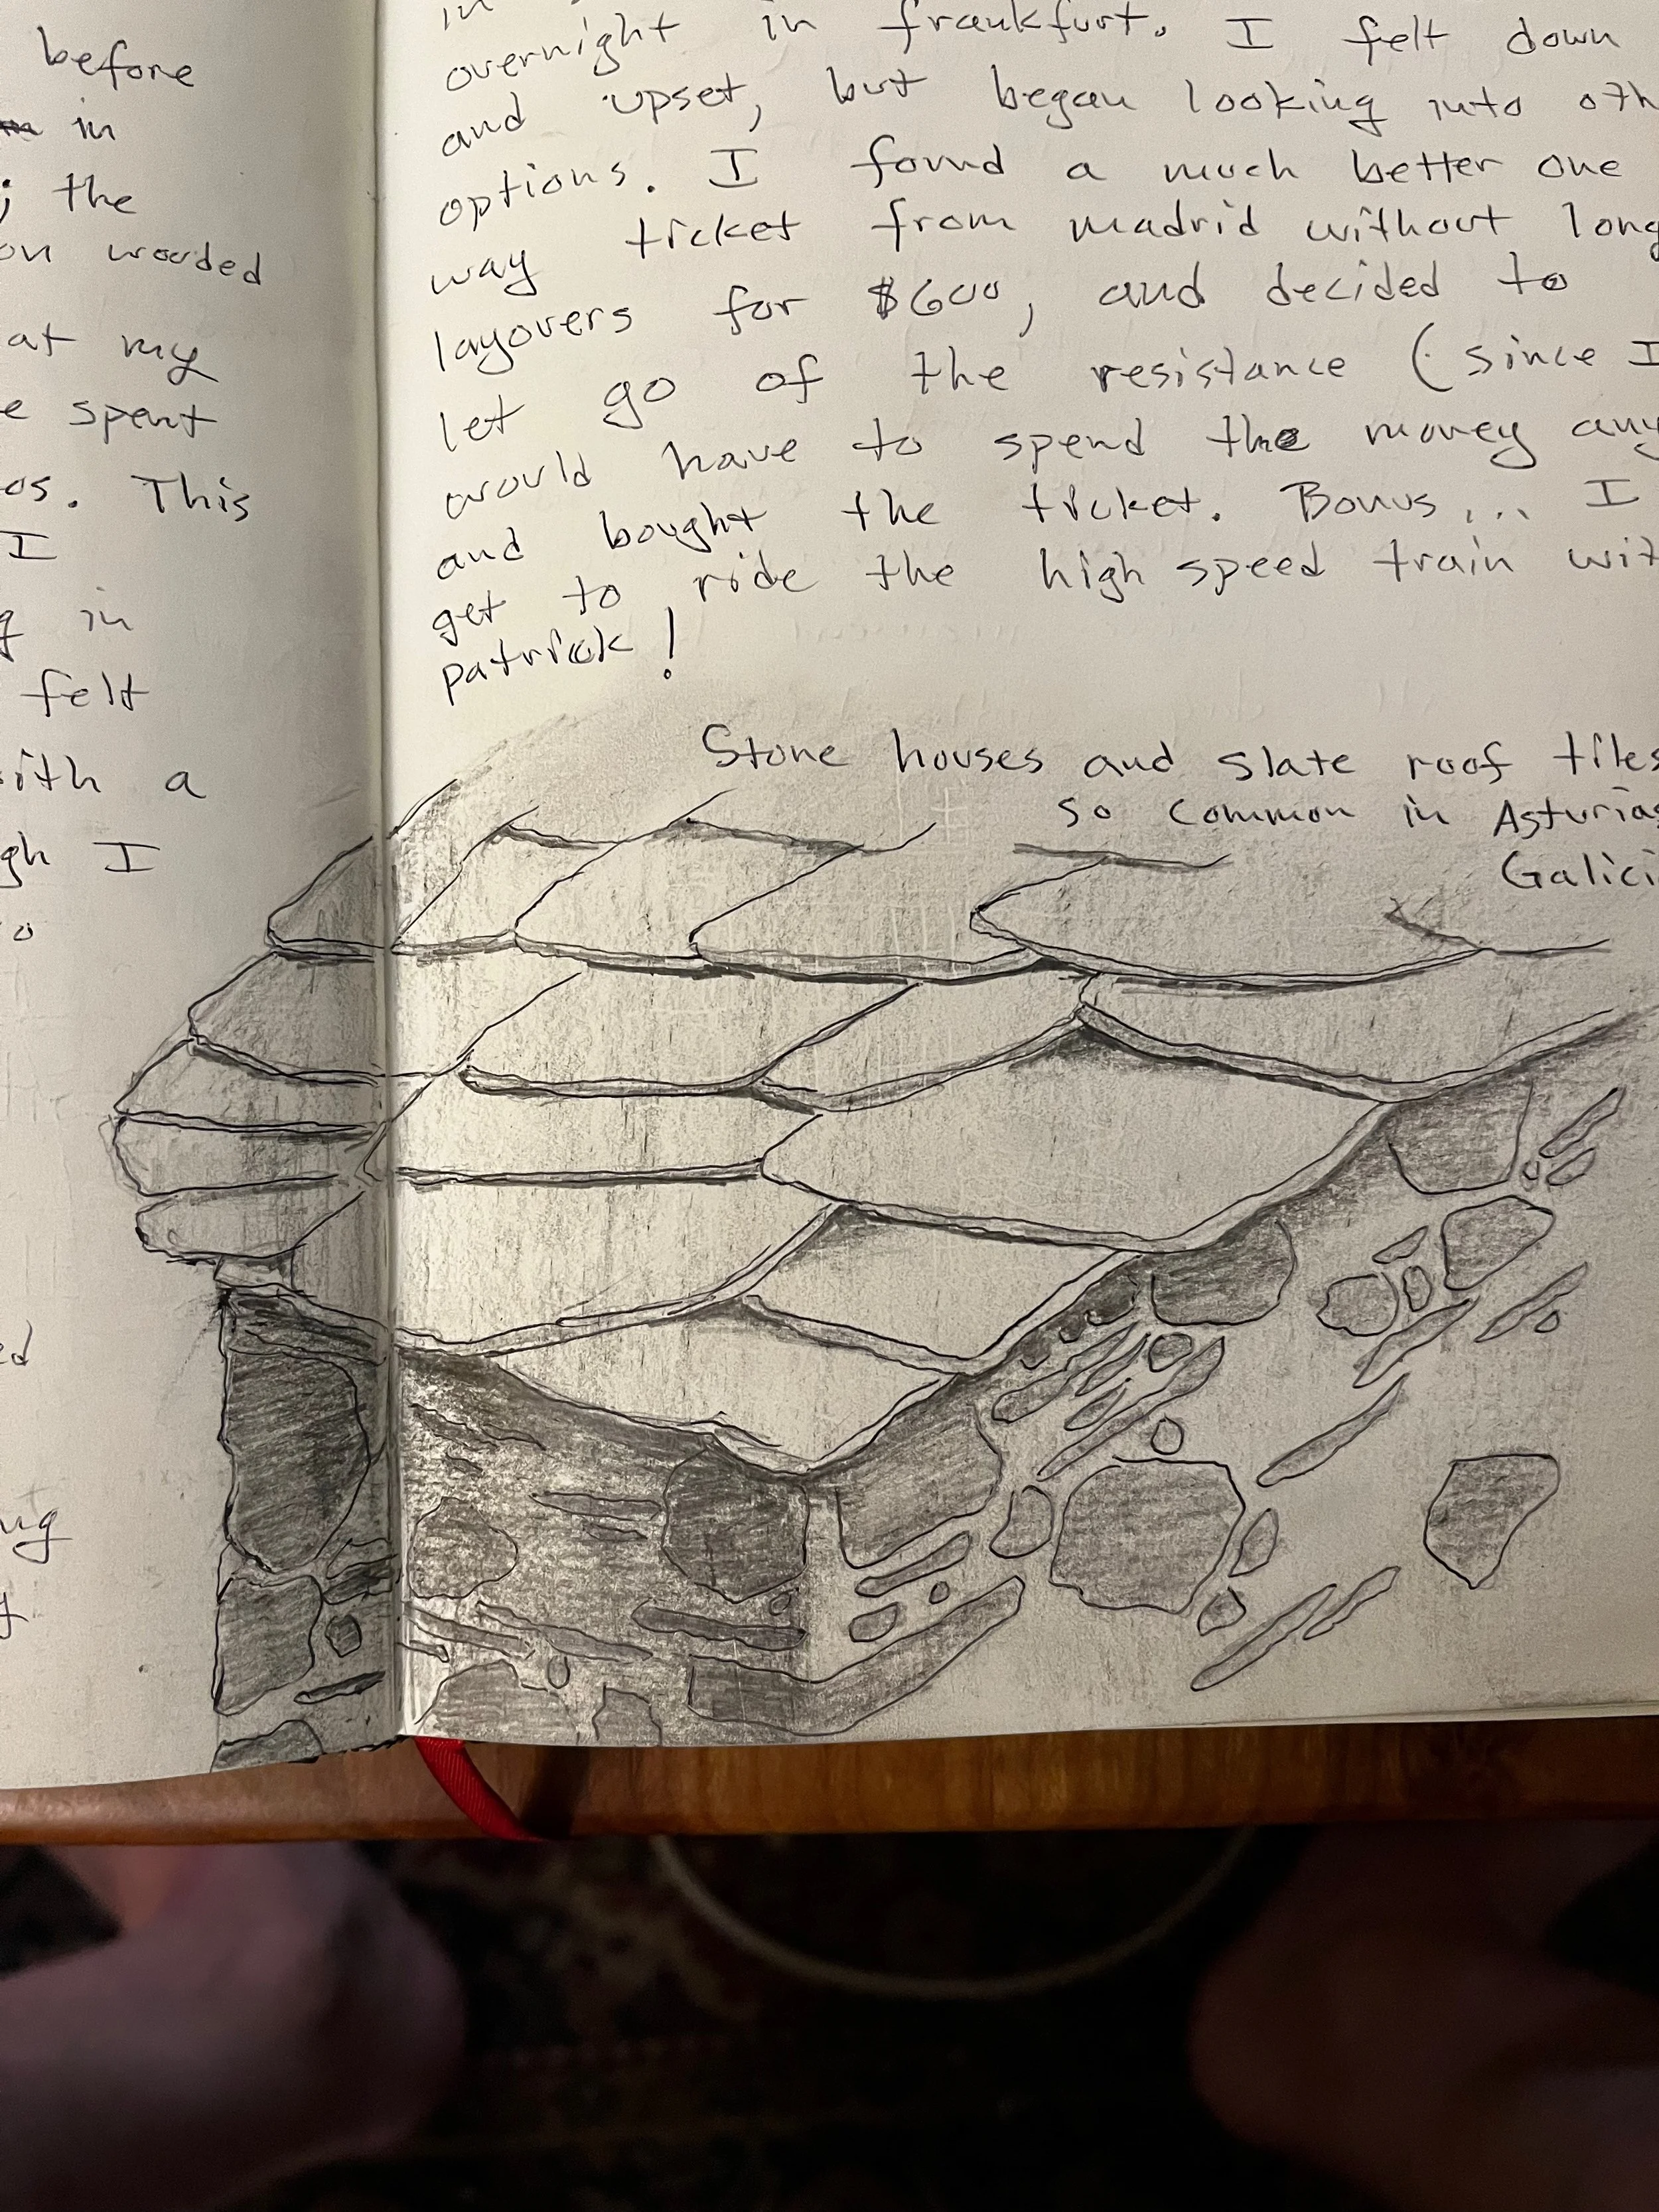 before
in
; the
on wooded
at my
e spent
os. This
I
g in
felt
ith a
gh I
o
ed
ug
y
in
overnight in frankfurt. I felt down
and upset, but began looking into oth
options. I found a much better one
way ticket from madrid without long
layovers for $600, and decided to
let go of the resistance (since I
would have to spend the money any
and bought the ticket. Bonus... I
get to ride the high speed train wit
patrick!
Stone houses and slate roof tiles
so common in Asturias
Galici